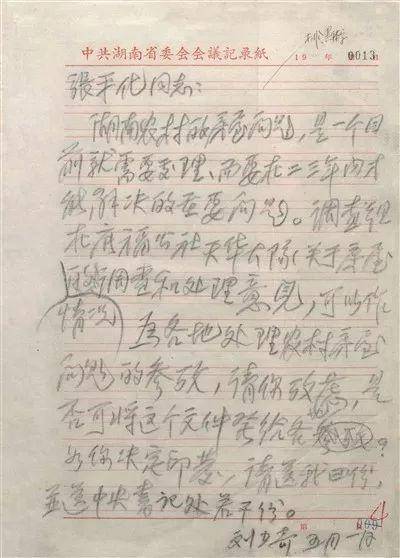 中共湖南省委会会議記录紙
19 年 0013 日
張平化同志：
湖南农村的房屋问题，是一个目
前就需要处理，而要在二三年内才
能解决的重要问题。调查组
在广福公社天华大队（关于房屋
调查和处理意见，可以作
情况 为各地处理农村房屋
问题的参考，请你考虑，是
否可将这个文件发给各
如你决定印发，请送我四份，
並送中央書记处若干份。
刘少奇 五月一日
第 000 4